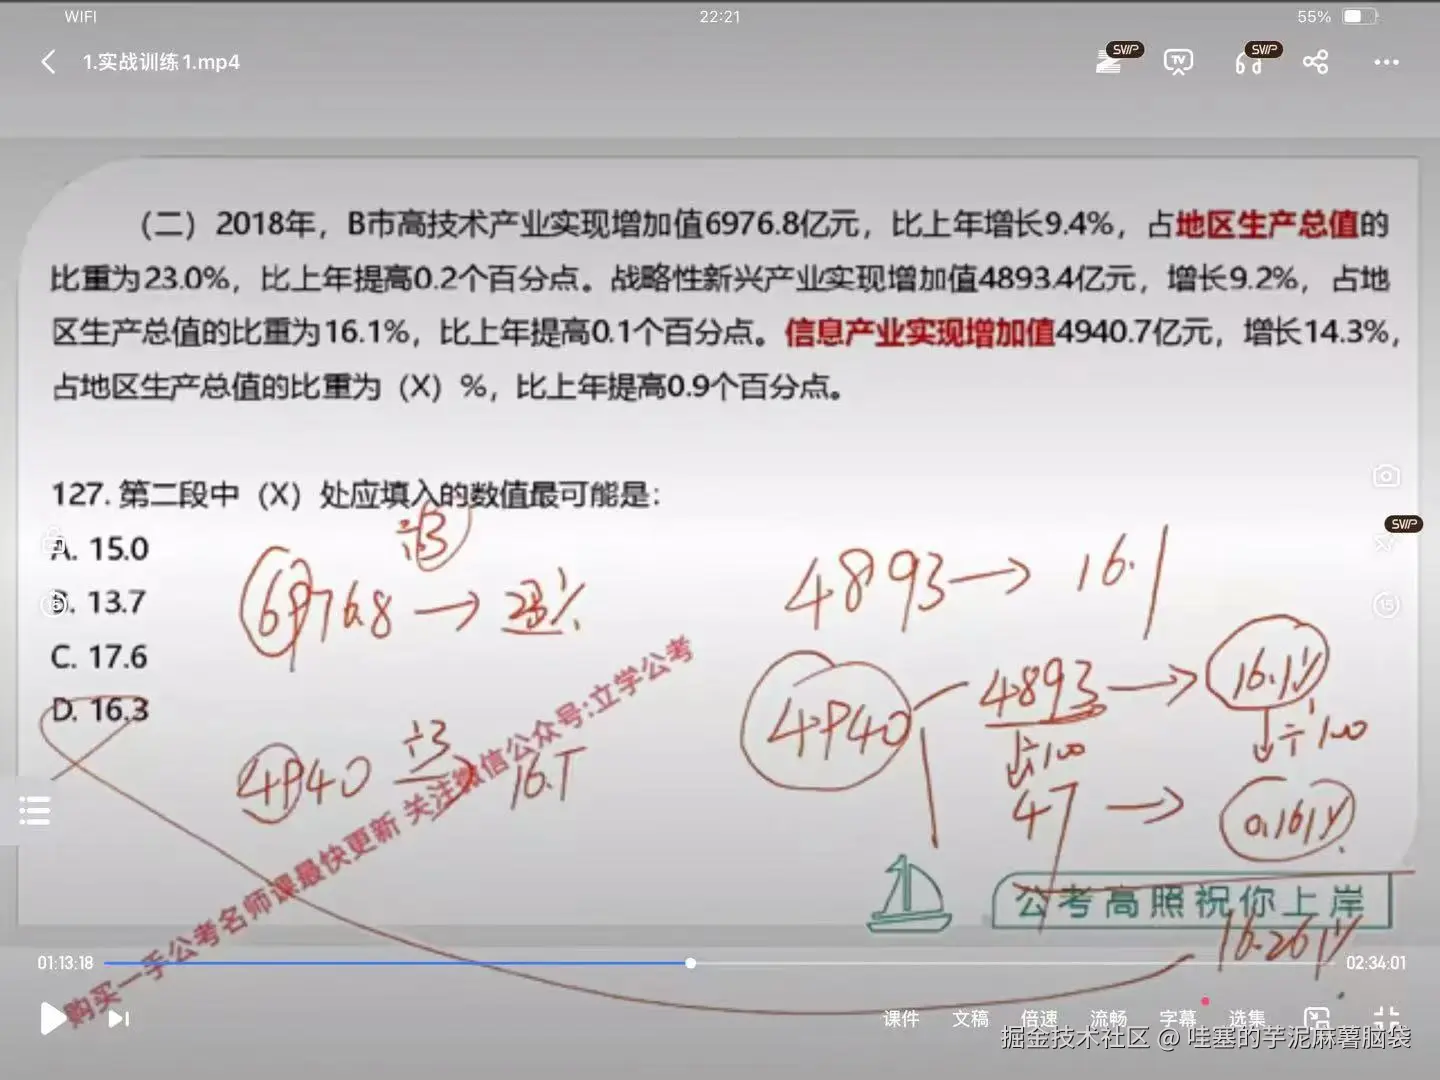 WIFI
22:21
55%
1.实战训练1.mp4
SVIP
TV
SVIP
（二）2018年，B市高技术产业实现增加值6976.8亿元，比上年增长9.4%，占地区生产总值的
比重为23.0%，比上年提高0.2个百分点。战略性新兴产业实现增加值4893.4亿元，增长9.2%，占地
区生产总值的比重为16.1%，比上年提高0.1个百分点。信息产业实现增加值4940.7亿元，增长14.3%，
占地区生产总值的比重为（X）%，比上年提高0.9个百分点。
127. 第二段中（X）处应填入的数值最可能是：
A. 15.0
B. 13.7
C. 17.6
D. 16.3
SVIP
15
15
÷3
6976.8 → 23%
4893 → 16.1
4940
4893 → 16.1%
÷100
÷100
47 → 0.161%
4940 ÷3
16.261%
购买一手公考名师课最快更新 关注微信公众号:立学公考
公考高照祝你上岸
01:13:18
02:34:01
课件
文稿
倍速
流畅
字幕
选集
掘金技术社区 @ 哇塞的芋泥麻薯脑袋